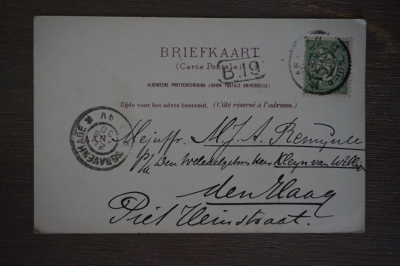 BRIEFKAART
(Carte Postale)
B.19
ALGEMEENE POSTVEREENIGING (UNION POSTALE UNIVERSELLE)
Zijde voor het adres bestemd. (Côté réservé à l'adresse.)
'S GRAVENHAGE
Mejuffr. M. J. A.
p/a Den Weledelgeboren Heer Kleyn van
den Haag
Piet Heinstraat.